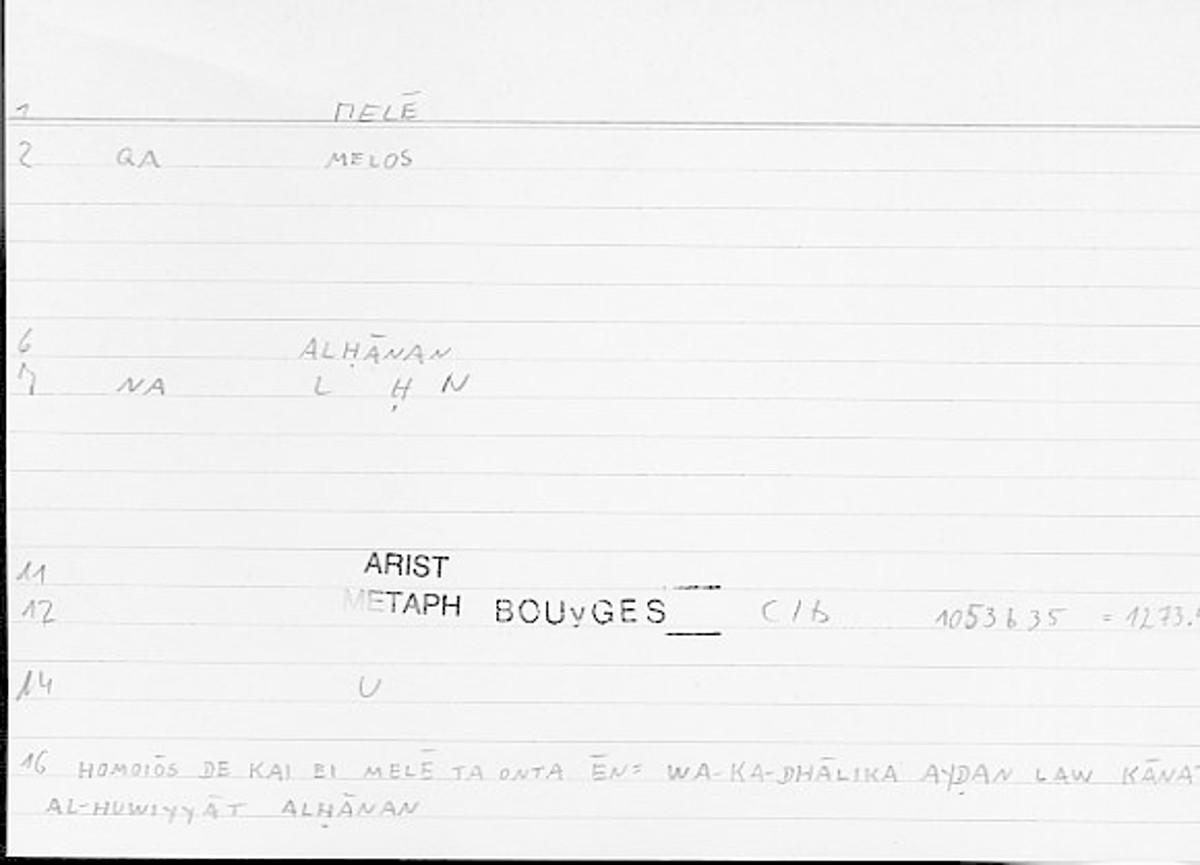 1 MELĒ
2 QA MELOS
6 ALḤĀNAN
7 NA L Ḥ N
11 ARIST
12 METAPH BOUyGES C/b 1053b35 = 1273.
14 U
16 HOMOIŌS DE KAI EI MELĒ TA ONTA ĒN= WA-KA-DHĀLIKA AYḌAN LAW KĀNAT
AL-HUWIYYĀT ALḤĀNAN